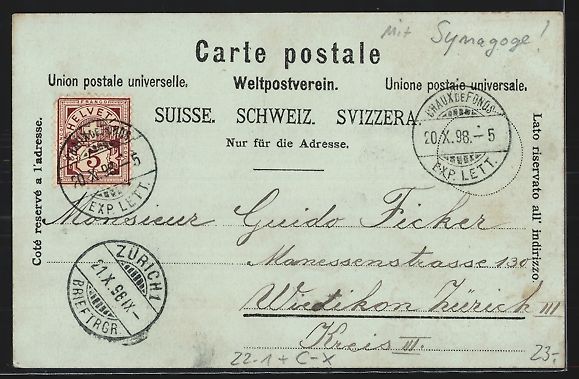 mit Synagoge!
Carte postale
Union postale universelle. Weltpostverein. Unione postale universale.
SUISSE. SCHWEIZ. SVIZZERA.
Nur für die Adresse.
Coté reservé a l'adresse.
Lato riservato all' indirizzo.
HELVETIA
5
CHAUX DE FONDS
20.X.98.-5
EXP. LETT.
CHAUX DE FONDS
20.X.98.-5
EXP. LETT.
Monsieur Guido Ficker
Manessenstrasse 130
Wiedikon Zürich III
Kreis III.
ZÜRICH 1
21.X.98 IX-
BRIEFTRGR
22-1 + C-X
23.-